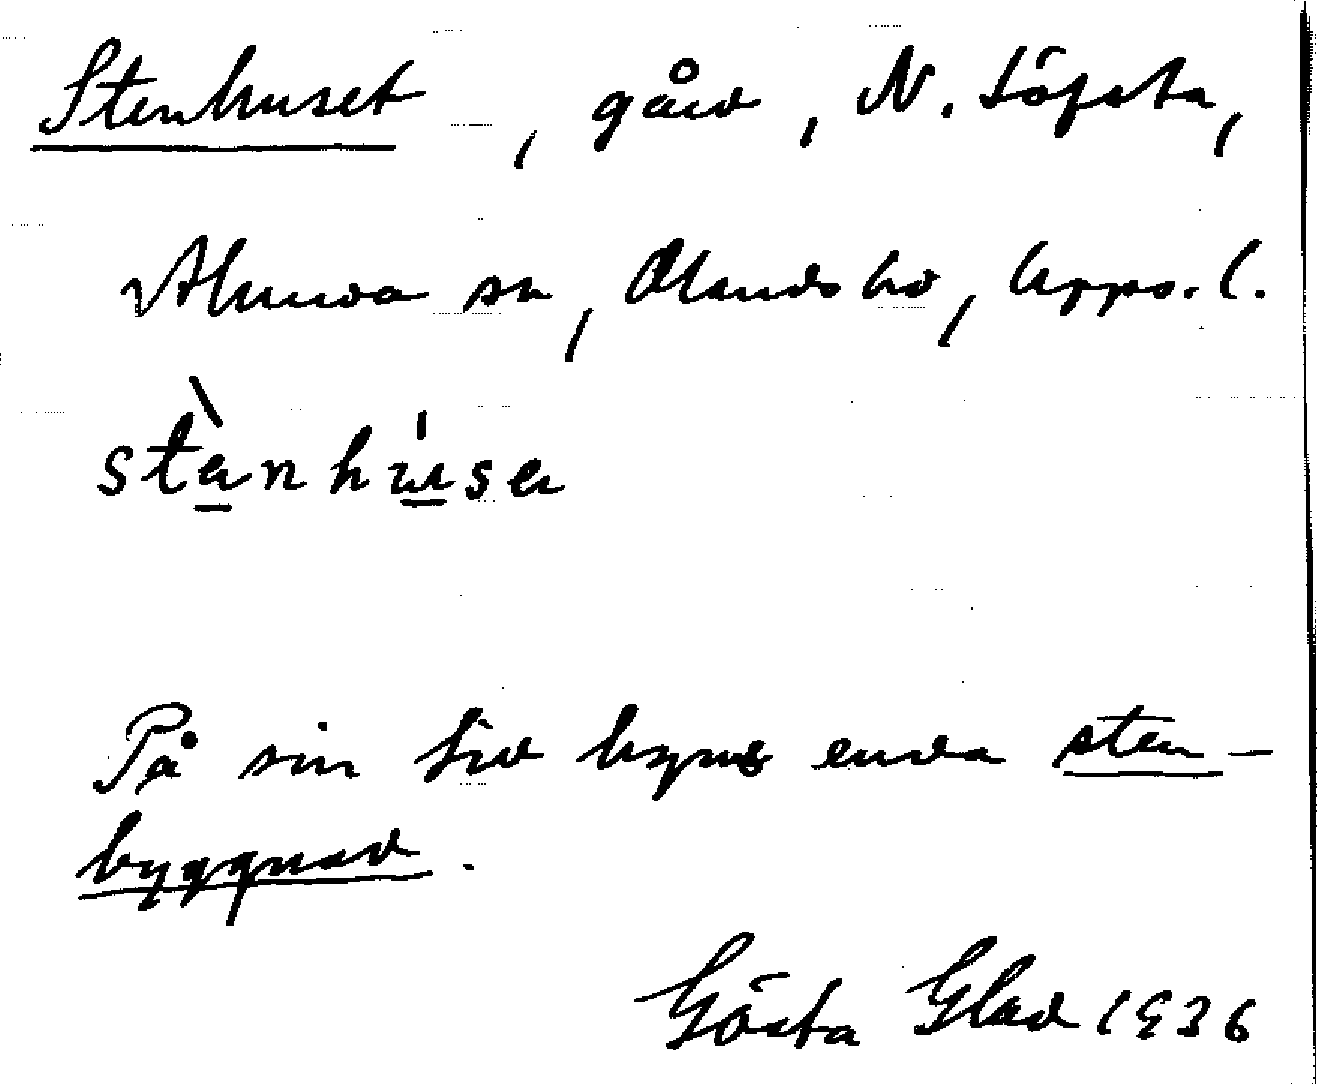 Stenhuset, gård, N. Löfsta,
Alunda sn, Olands hd, Upps. l.
stḕnhúsen
På sin tid byns enda sten-
byggnad.
Gösta Glad 1936